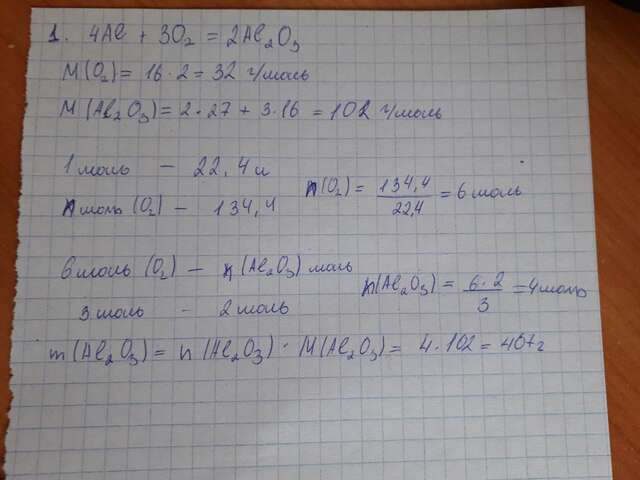 1. 4Al + 3O₂ = 2Al₂O₃
M(O₂) = 16·2 = 32 г/моль
M(Al₂O₃) = 2·27 + 3·16 = 102 г/моль
1 моль – 22,4 л
n моль (O₂) – 134,4
n(O₂) = 134,4/22,4 = 6 моль
6 моль (O₂) – n(Al₂O₃) моль
3 моль – 2 моль
n(Al₂O₃) = 6·2/3 = 4 моль
m(Al₂O₃) = n(Al₂O₃) · M(Al₂O₃) = 4·102 = 407 г